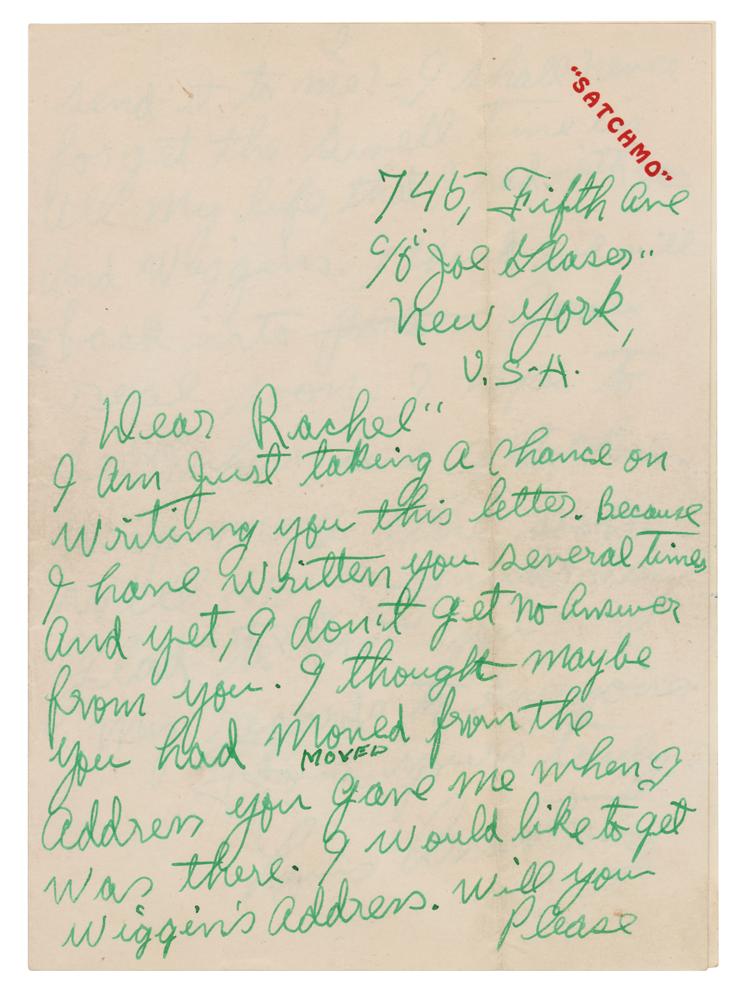 "SATCHMO"
745, Fifth Ave
c/o "Joe Glaser"
New York,
U.S.A.
Dear Rachel"
I Am Just taking a chance on
Writing you this letter. Because
I have written you several times
And yet, I don't get no Answer
from you. I thought maybe
you had moved from the
MOVED
Address you gave me when I
was there. I would like to get
Wiggin's Address. Will you
Please